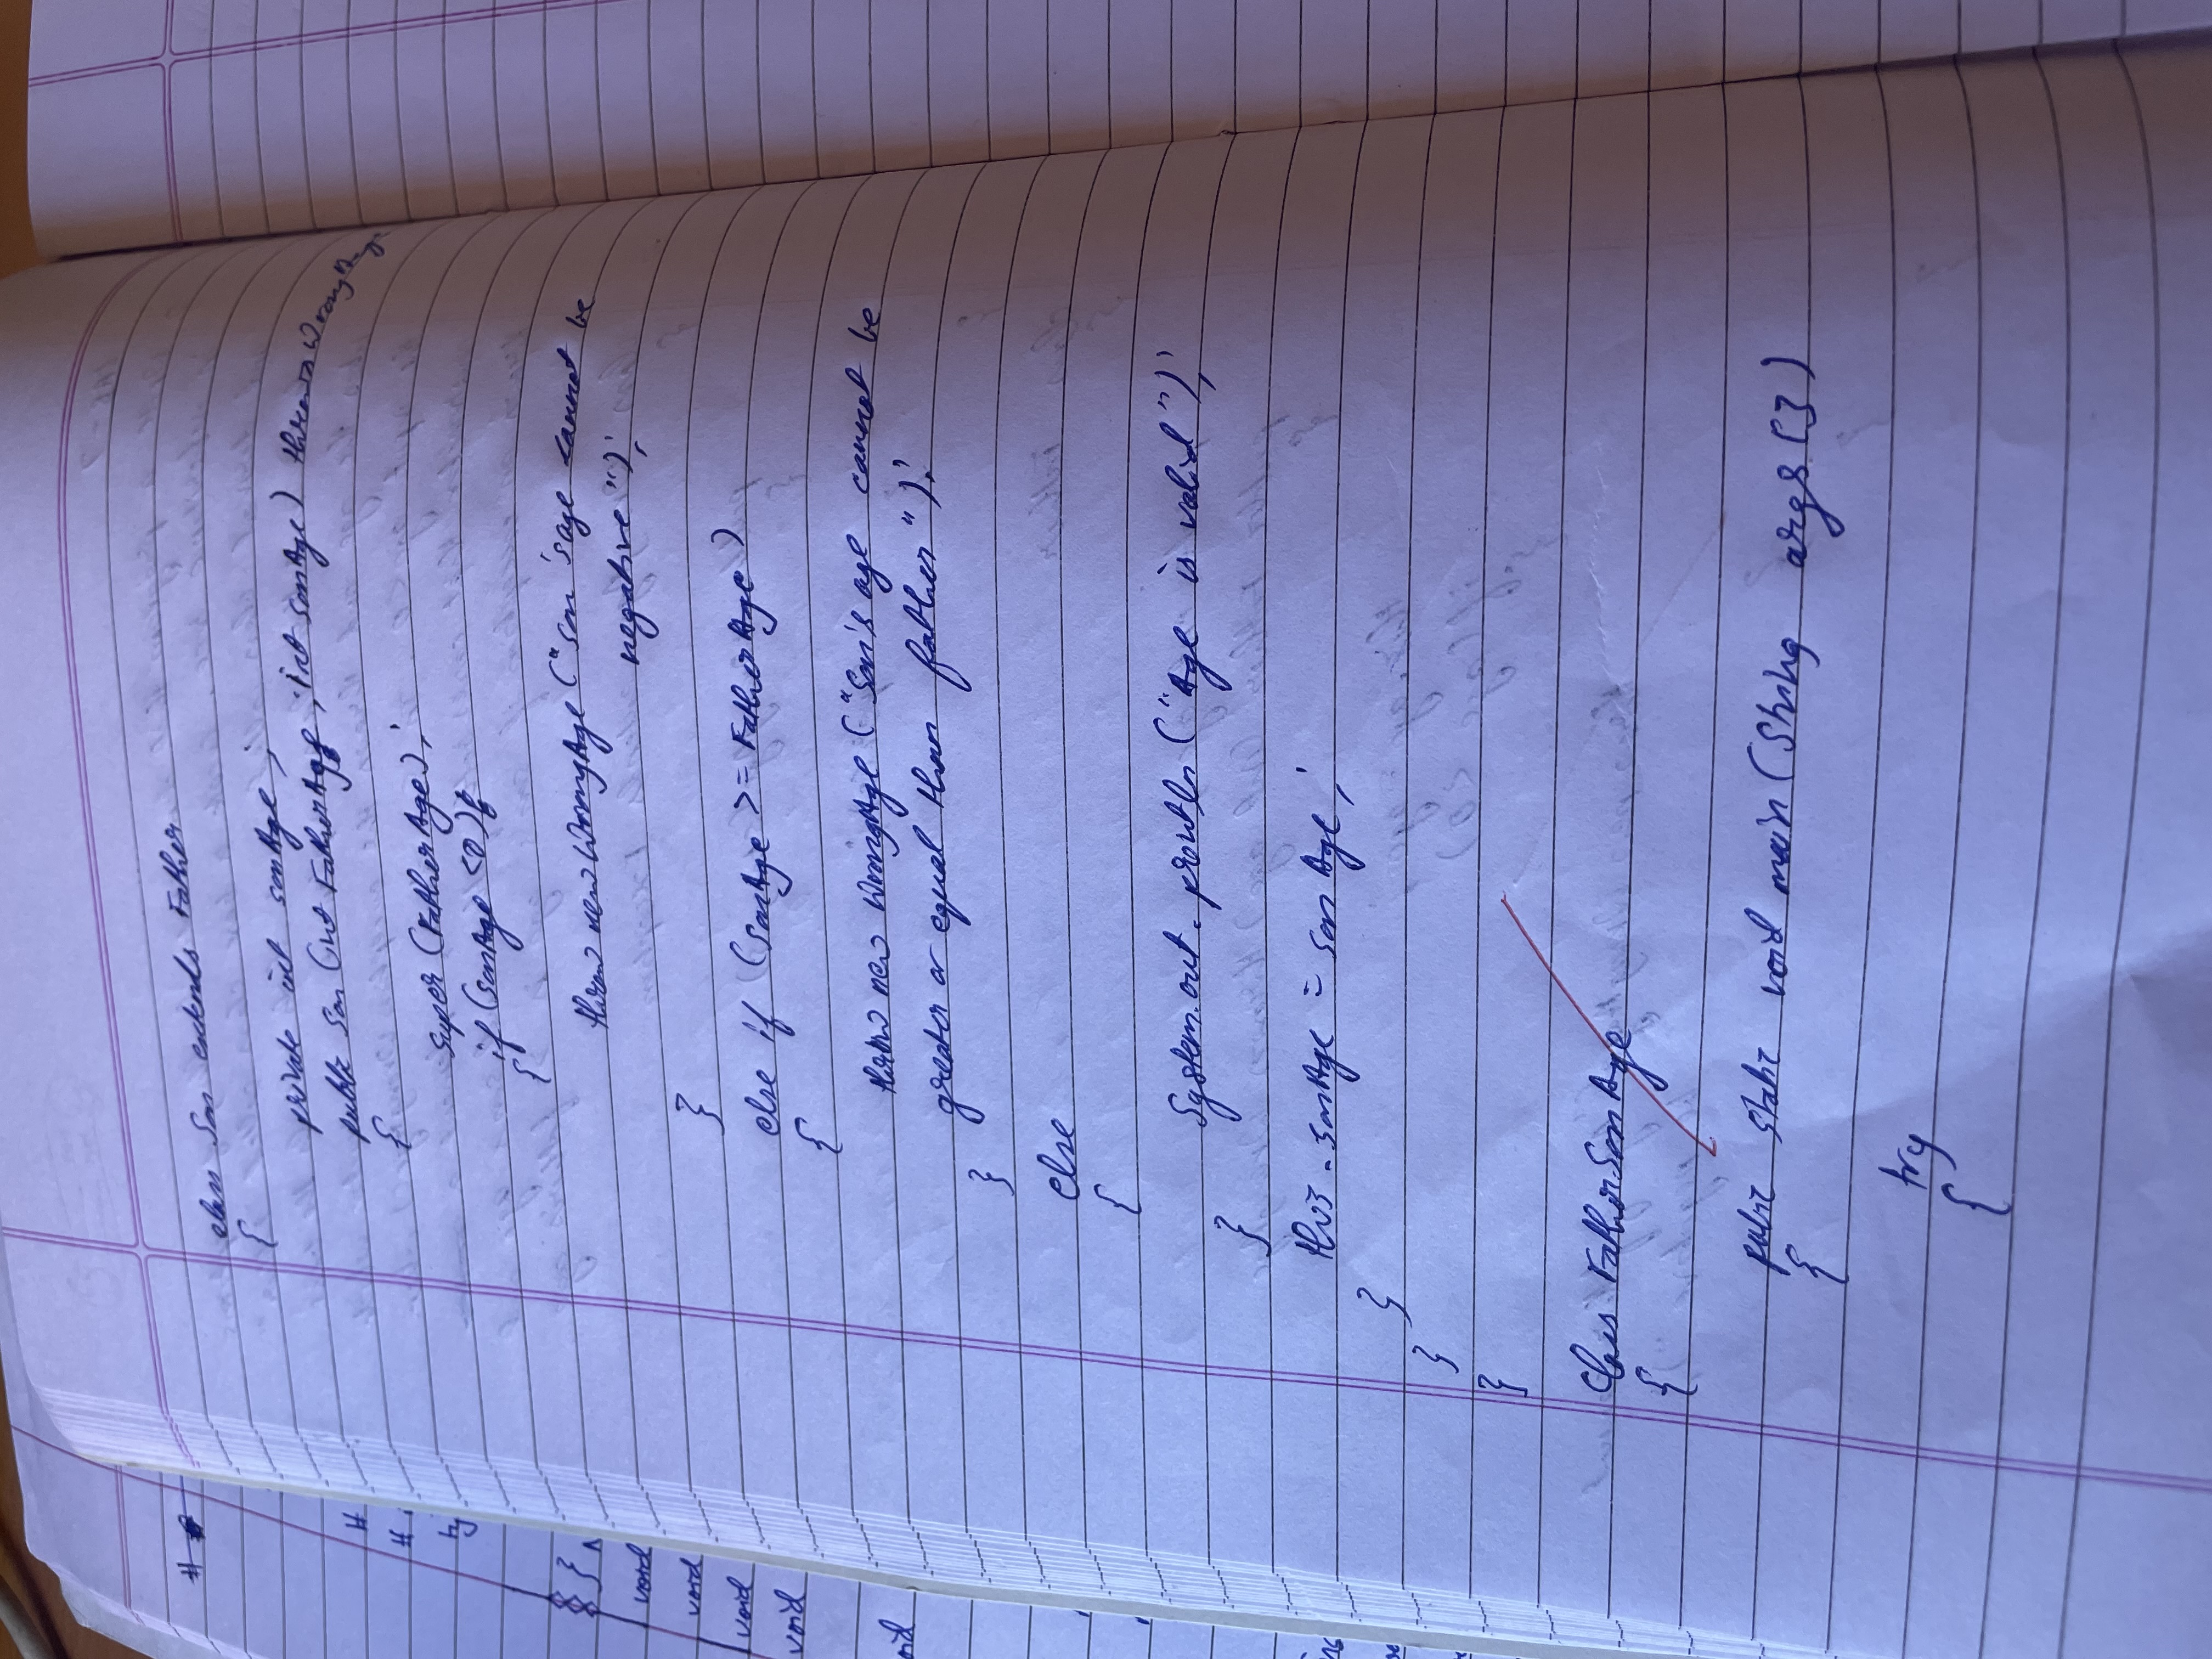 #
#
#
ty
}
void
void
void
void
oid
class Son extends Father
{
private int sonAge;
public Son (int FatherAge, int sonAge) throws WrongAge
{
super (FatherAge);
if (sonAge <0)
{
throw new WrongAge ("son's age cannot be
negative");
}
else if (sonAge >= FatherAge)
{
throw new WrongAge ("Son's age cannot be
greater or equal than father");
}
else
{
System.out.println ("Age is valid");
}
this.sonAge = sonAge;
}
}
}
class FatherSonAge
{
public static void main (String args [])
{
try
{